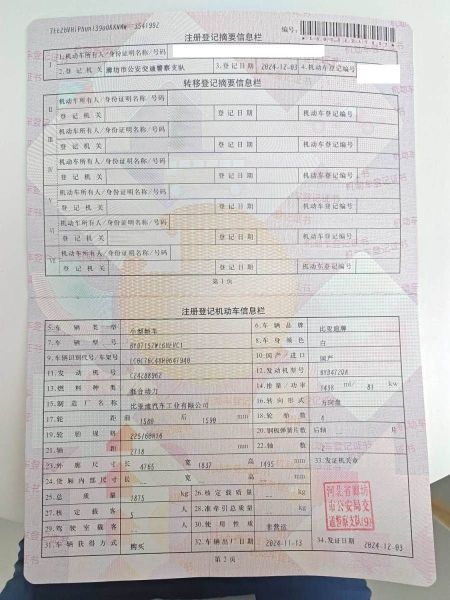 注册登记摘要信息栏
编号:
1.机动车所有人/身份证明名称/号码
Ⅰ 2.登 记 机 关 廊坊市公安交通警察支队 3.登记日期 2024-12-03 4.机动车登记编号
转移登记摘要信息栏
Ⅱ 机动车所有人/身份证明名称/号码
登 记 机 关 登记日期 机动车登记编号
Ⅲ 机动车所有人/身份证明名称/号码
登 记 机 关 登记日期 机动车登记编号
Ⅳ 机动车所有人/身份证明名称/号码
登 记 机 关 登记日期 机动车登记编号
Ⅴ 机动车所有人/身份证明名称/号码
登 记 机 关 登记日期 机动车登记编号
Ⅵ 机动车所有人/身份证明名称/号码
登 记 机 关 登记日期 机动车登记编号
Ⅶ 机动车所有人/身份证明名称/号码
登 记 机 关 登记日期 机动车登记编号
第 1 页
注册登记机动车信息栏
5.车 辆 类 型 小型轿车 6.车 辆 品 牌 比亚迪牌
7.车 辆 型 号 8.车 身 颜 色 白
9.车辆识别代号/车架号 10.国 产 / 进 口 国产
11.发 动 机 号 12.发动机型号 BYD472QA
13.燃 料 种 类 混合动力 14.排 量 / 功 率 1498 ml/ 81 kw
15.制 造 厂 名 称 比亚迪汽车工业有限公司 16.转 向 形 式 方向盘
17.轮 距 前 1580 后 1590 mm 18.轮 胎 数 4
19.轮 胎 规 格 225/60R16 20.钢板弹簧片数 后轴 片
21.轴 距 2718 mm 22.轴 数 2
23.外 廓 尺 寸 长 4765 宽 1837 高 1495 mm 33.发证机关章
24.货厢内部尺寸 长 宽 高 mm
25.总 质 量 1875 kg 26.核 定 载 质 量 kg
27.核 定 载 客 5 人 28.准牵引总质量 kg
29.驾 驶 室 载 客 人 30.使 用 性 质 非营运
河北省廊坊
市公安局交
通警察支队(9)
31.车辆获得方式 购买 32.车辆出厂日期 2024-11-13 34.发证日期 2024-12-03
第 2 页